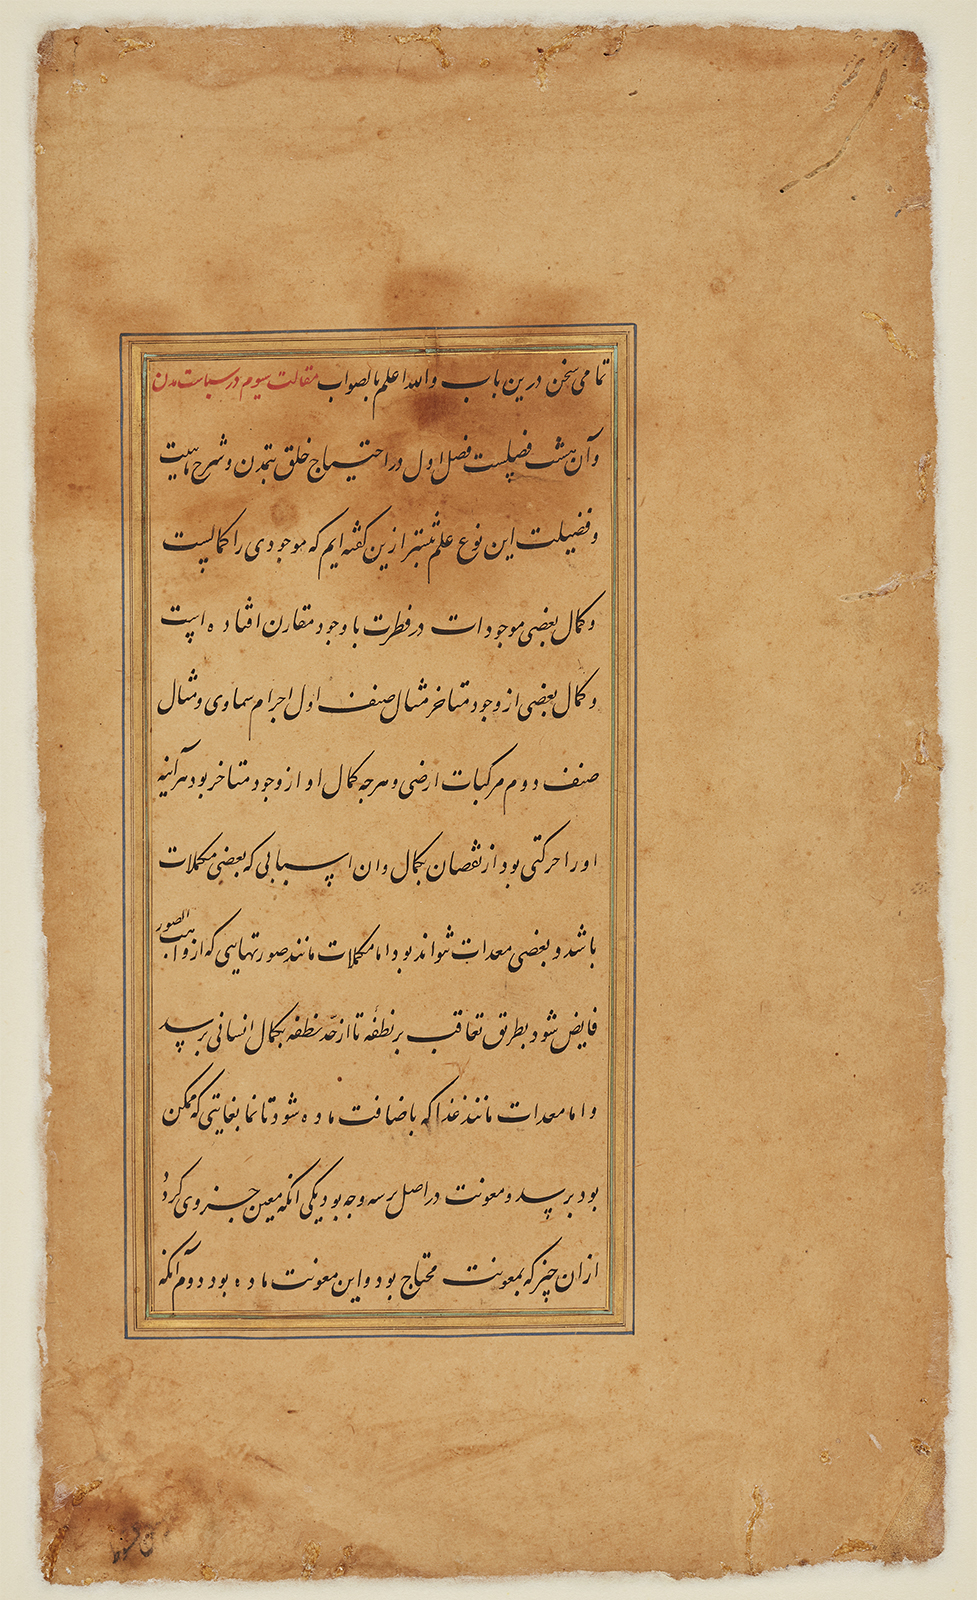 تمامی سخن درین باب والله اعلم بالصواب مقالت سیوم در سیاست مدن
وآن هشت فصلست فصل اول در احتیاج خلق بتمدن و شرح ماهیت
و فضیلت این نوع علم پیشتر ازین گفته ایم که موجودی را کمالیست
و کمال بعضی موجودات در فطرت با وجود مقارن افتاده است
و کمال بعضی از وجود متاخر مثال صنف اول اجرام سماوی و مثال
صنف دوم مرکبات ارضی و هرچه کمال او از وجود متاخر بود هرآینه
او را حرکتی بود از نقصان بکمال و ان اسبابی که بعضی مکملات
باشد و بعضی معدات تواند بود اما مکملات مانند صورتهایی که از واهب الصور
فایض شود بطریق تعاقب بر نطفه تا از حد نطفه بکمال انسانی برسد
و اما معدات مانند غذا که باضافت ماده شود تا نما بغایتی که ممکن
بود برسد و معونت در اصل بر سه وجه بود یکی انکه معین جزوی کردد
از ان چیز که بمعونت محتاج بود و این معونت ماده بود دوم آنکه